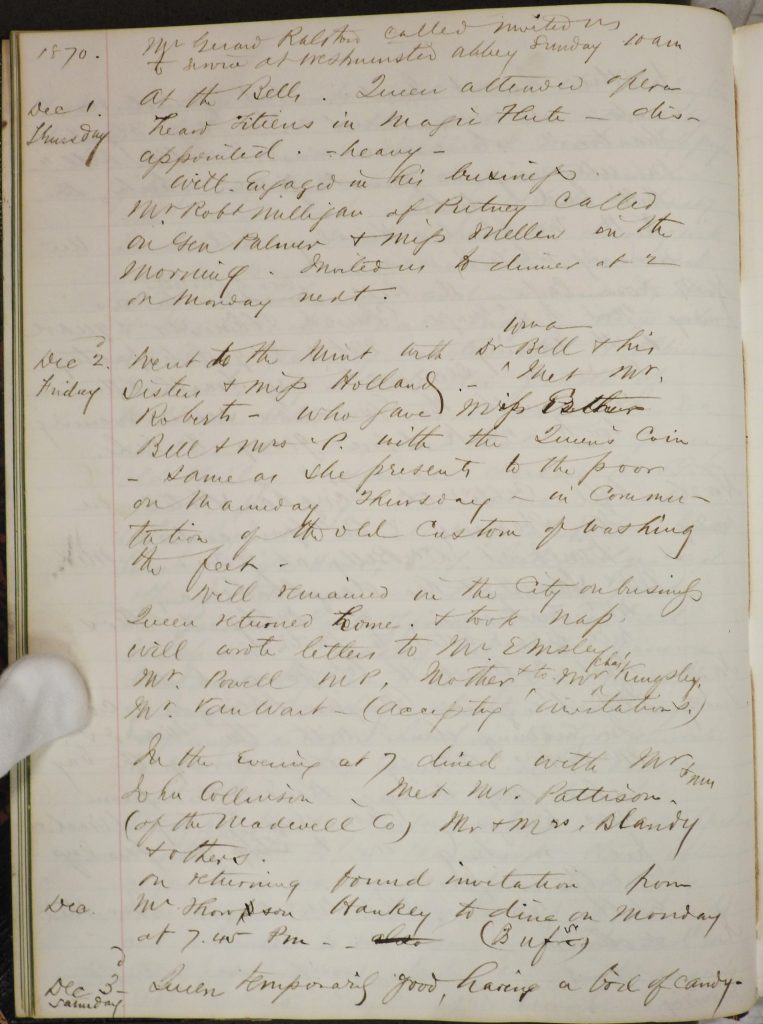 1870. Mr Gerard Ralston called invited us
to service at Westminster Abbey Sunday 10 am
Dec 1. At the Bells. Queen attended opera
Thursday heard Titiens in Magic Flute – dis-
appointed. – heavy –
Will. Engaged in his business.
Mr Robt Milligan of Putney called
on Gen Palmer & Miss Mellen in the
morning. Invited us to dinner at 2
on Monday next.
Dec 2d. Went to the Mint with Dr Bell & his
Friday Sisters & Miss Holland – Met Mr.
Roberts – who gave Miss Esther
Bell & Mrs P. with the Queen's Coin
– same as she presents to the poor
on Maunday Thursday – in Commu-
tation of the old Custom of washing
the feet –
Will remained in the City on business
Queen returned home. & took nap.
Will wrote letters to Mr Emsley
Mr. Powell MP, Mother & to Mr Chas Kingsley,
Mr. Van Wart – (accepting invitations.)
In the Evening at 7 dined with Mr & Mrs
John Collinson. Met Mr. Pattison.
(of the Maxwell Co) Mr & Mrs. Blandy
& others.
on returning found invitation from
Dec. Mr Thompson Hankey to dine on Monday
at 7.45 Pm – also
Dec 3d Queen temporarily good, having a cold of candy–
Saturday